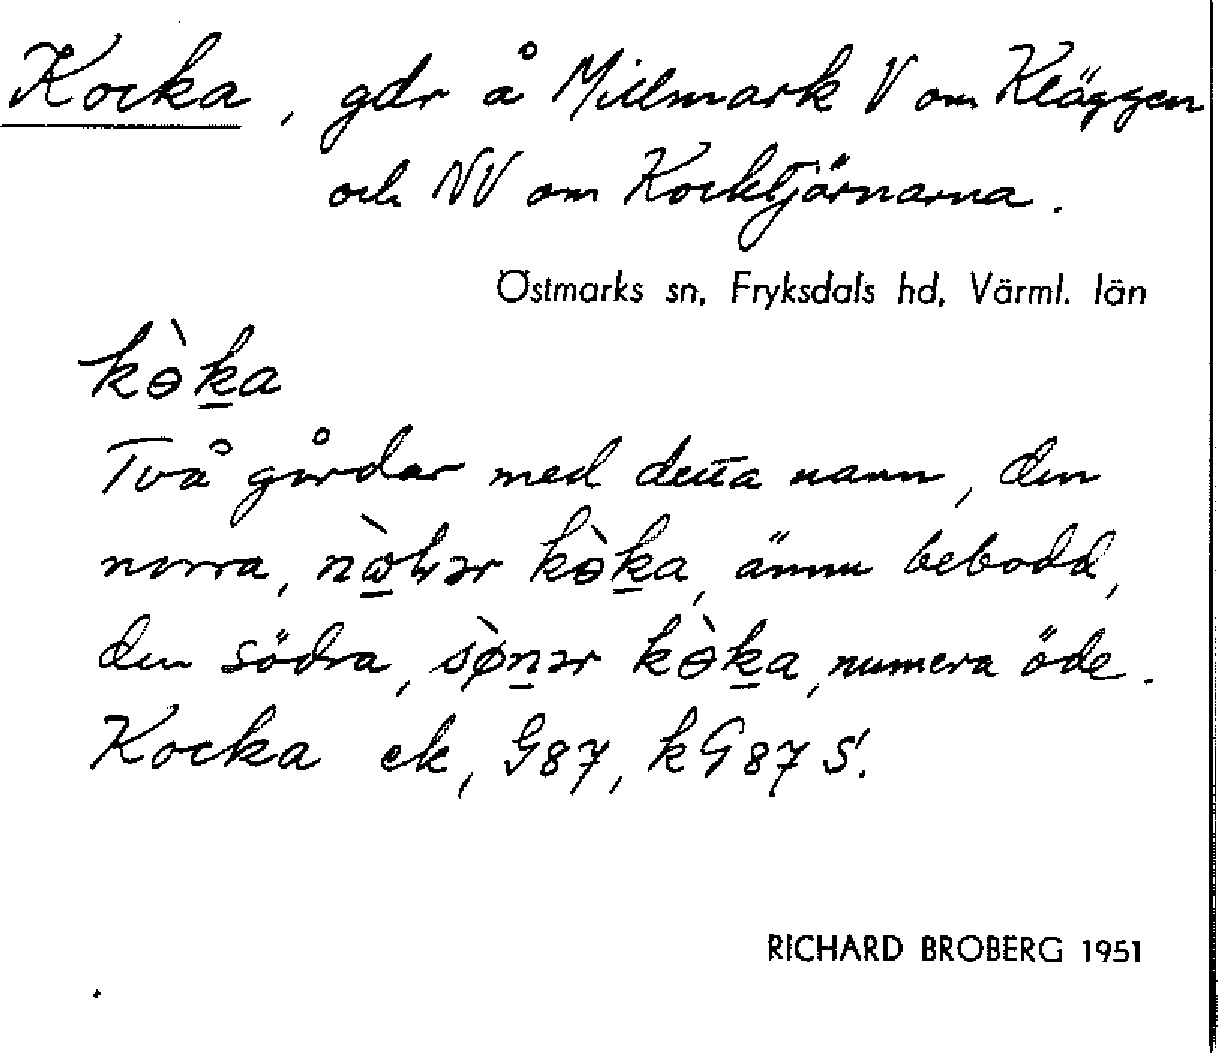 Kocka, gdr å Millmark V om Kläggen
och NV om Kocktjärnarna.
Östmarks sn, Fryksdals hd, Värml. län
kɵ̀ḵa
Två gårdar med detta namn, den
norra, kɵ̀ḵa, ännu bebodd,
den södra, sø̀ṉər kɵ̀ḵa, numera öde.
Kocka ek, G87, kG87 S!
RICHARD BROBERG 1951